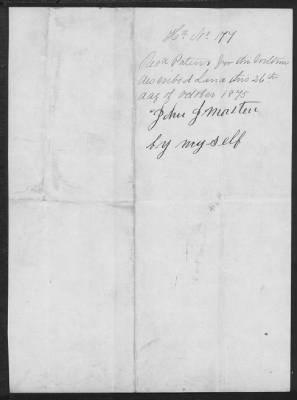 Hd. No. 177
Recd Patent for the within
described Land this 26th
day of October 1875
John J Masten
by myself